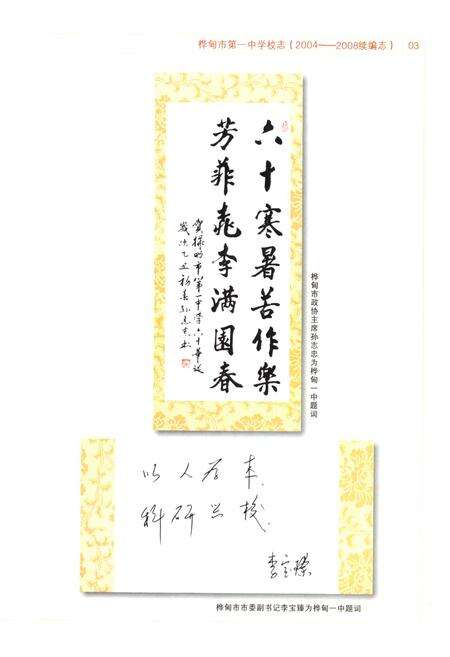 桦甸市第一中学校志(2004——2008续编志) 03
六十寒暑苦作樂
芳菲桃李满園春
贺桦甸市第一中学六十华诞
歲次乙酉初春孙志忠书
桦甸市政协主席孙志忠为桦甸一中题词
以人为本
科研兴校
李宝臻
桦甸市市委副书记李宝臻为桦甸一中题词